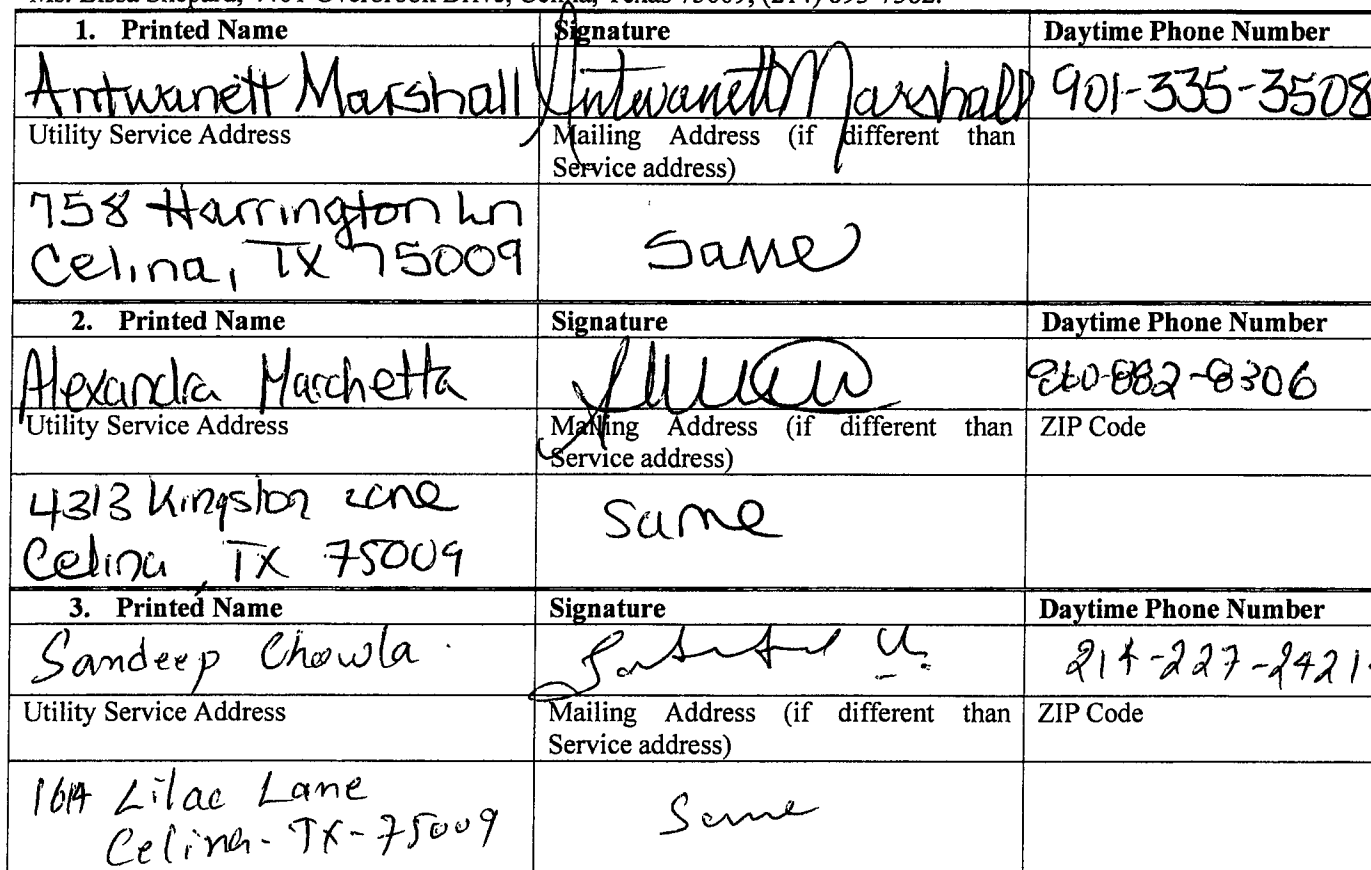 1. Printed Name Signature Daytime Phone Number
Antwanett Marshall Antwanett Marshall 901-335-3508
Utility Service Address Mailing Address (if different than
Service address)
758 Harrington Ln
Celina, TX 75009 Same
2. Printed Name Signature Daytime Phone Number
Alexandra Marchetta 860-882-8306
Utility Service Address Mailing Address (if different than ZIP Code
Service address)
4313 Kingston Lane Same
Celina, TX 75009
3. Printed Name Signature Daytime Phone Number
Sandeep Chowla 214-227-2421
Utility Service Address Mailing Address (if different than ZIP Code
Service address)
Lilac Lane Same
Celina-TX-75009